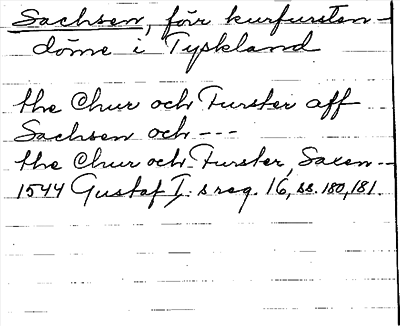 Sachsen, förr kurfursten-
döme i Tyskland
the Chur och Furster aff
Sachsen och ---
the Chur och Furster, Saxen--
1544 Gustaf I:s reg. 16, ss. 180, 181.